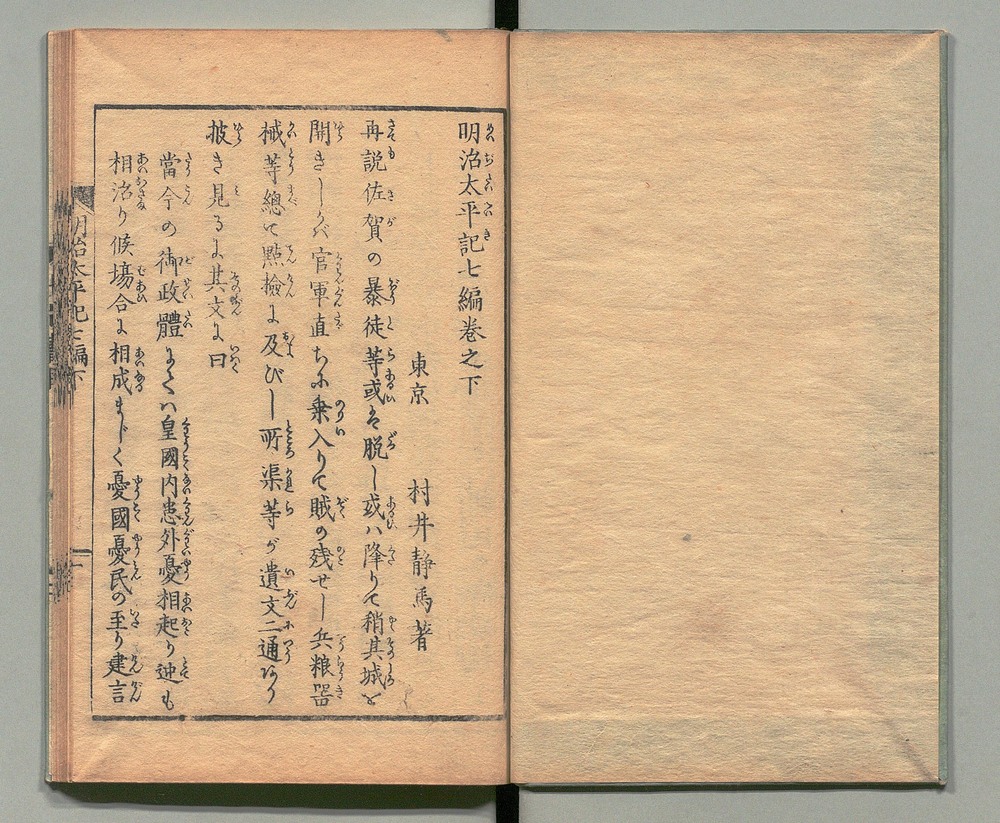 明治太平記七編巻之下
東京 村井静馬著
再説佐賀の暴徒等或は脱し或ハ降りて稍其城を
開きしかバ官軍直ちに乗入りて賊の残せし兵粮器
械等總て點撿に及びし所渠等が遺文二通あり
披き見るに其文に曰
當今の御政體にてハ皇國内患外憂相起り迚も
相治り候塲合に相成まじく憂國憂民の至り建言
明治太平記七編下